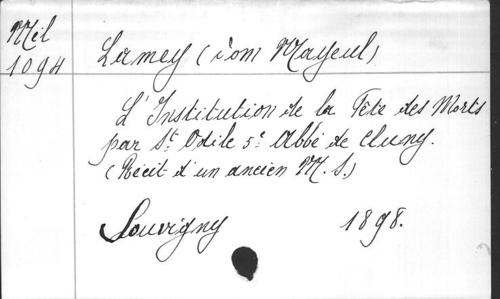 Mél
1094
Lamey (dom Mayeul)
L'Institution de la Fête des Morts
par St. Odile 5e Abbé de Cluny.
(Récit d'un ancien M. S.)
Souvigny 1898.